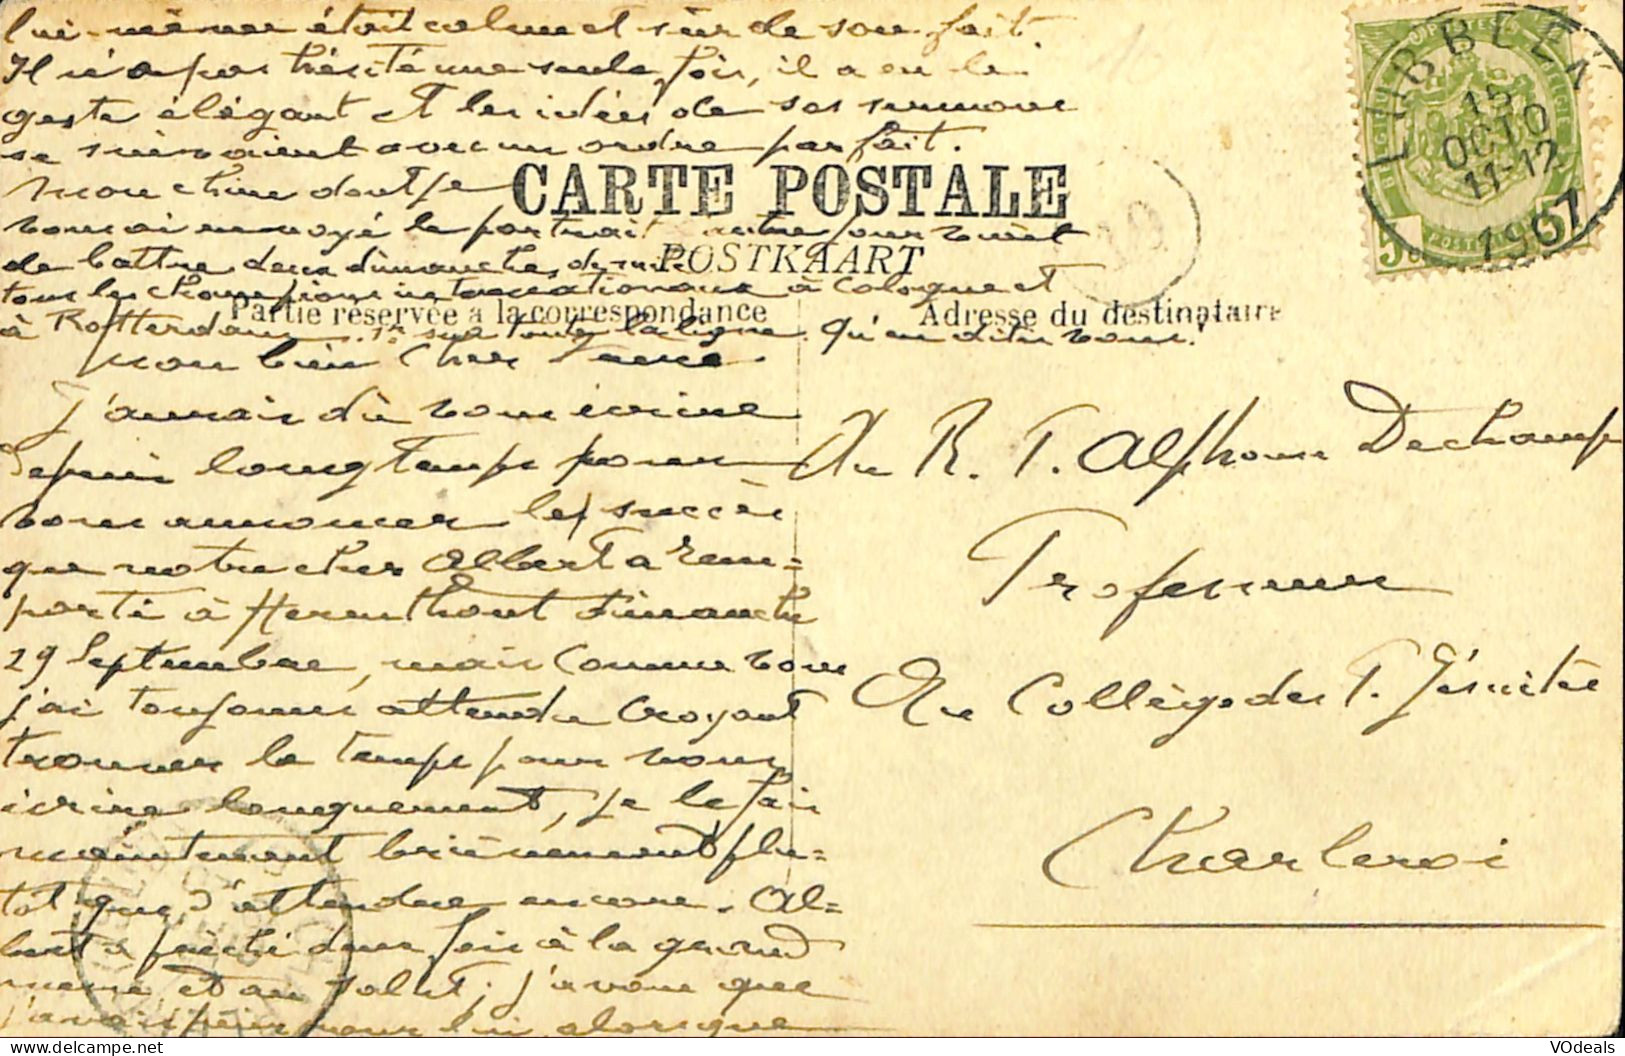 lui-même était calme et sûr de son fait.
Il n'a pas hésité une seule fois, il a eu le
geste élégant et les idées de ses sermons
se suivaient avec un ordre parfait.
Mon chien dont je
CARTE POSTALE
vous ai envoyé le portrait
de battre deux dimanches de suite
POSTKAART
tous les champions internationaux à Cologne et
Partie réservée à la correspondance
Adresse du destinataire
à Rotterdam. 1er sur toute la ligne. Qu'en dites vous!
Mon bien Cher
J'aurais dû vous écrire
depuis longtemps pour
vous annoncer les succès
que notre cher Albert a rem=
porté à Herenthout dimanche
29 Septembre, mais comme vous
j'ai toujours attendu croyant
trouver le temps pour vous
écrire longuement, je le fais
maintenant brièvement plu=
tôt que d'attendre encore. Al=
bert a prêché deux fois à la grand
messe et au salut; j'avoue que
j'avais peur pour lui alors que
Au R. P. Alphonse Dechamps
Professeur
Au Collège des P. Jésuites
Charleroi
LUBBEEK
15
OCTO
11-12
1907
BELGIQUE
POSTES
5c
VOdeals